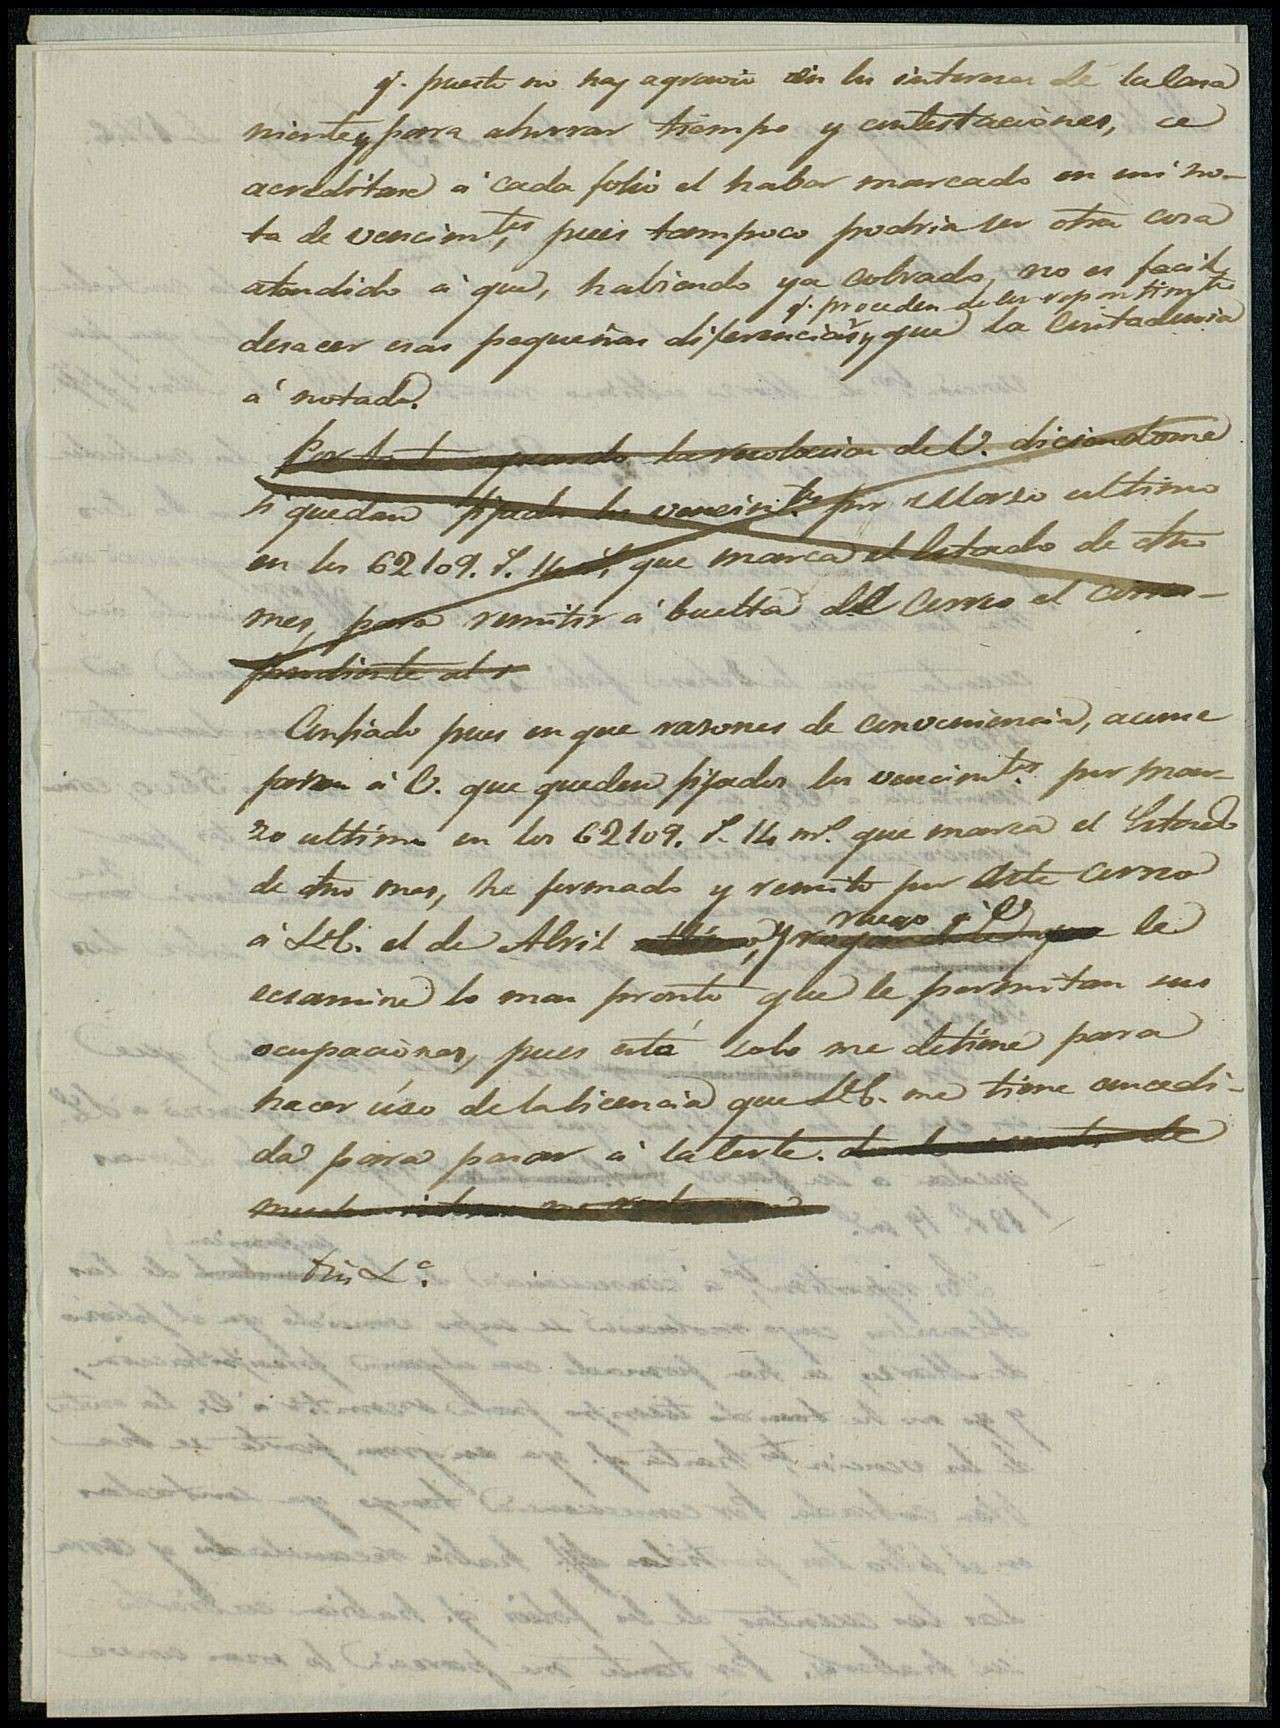 q.e puesto no hay agravio en los intereses de la Casa
niente y para ahorrar tiempo y contestaciones, se
acreditase á cada folio el haber marcado en mi no-
ta de vencim.tos, pues tampoco podria ser otra cosa
atendido á que, habiendo ya cobrado, no es facil
q.e proceden de los repartim.tos
desacer esas pequeñas diferencias, y que la Contaduria
á notado.
Por tanto la resolucion de V. diciendome
si quedan fijados los vencim.tos por Marzo ultimo
en los 62109. r.s 14 m.s que marca el Estado de dho
mes, para remitir á buelta del Correo el corres-
pondiente al
Confiado pues en que razones de conveniencia, acon
á V. que queden fijados los vencim.tos por mar-
zo ultimo en los 62109. r.s 14 m.s que marca el Estado
de dho mes, he formado y remito por este correo
ruego á V.
á V. el de Abril le
ecsamine lo mas pronto que le permitan sus
ocupaciones, pues está solo me detiene para
hacer uso de la licencia que V. me tiene concedi-
da para pasar á la Corte.
Dios L.e